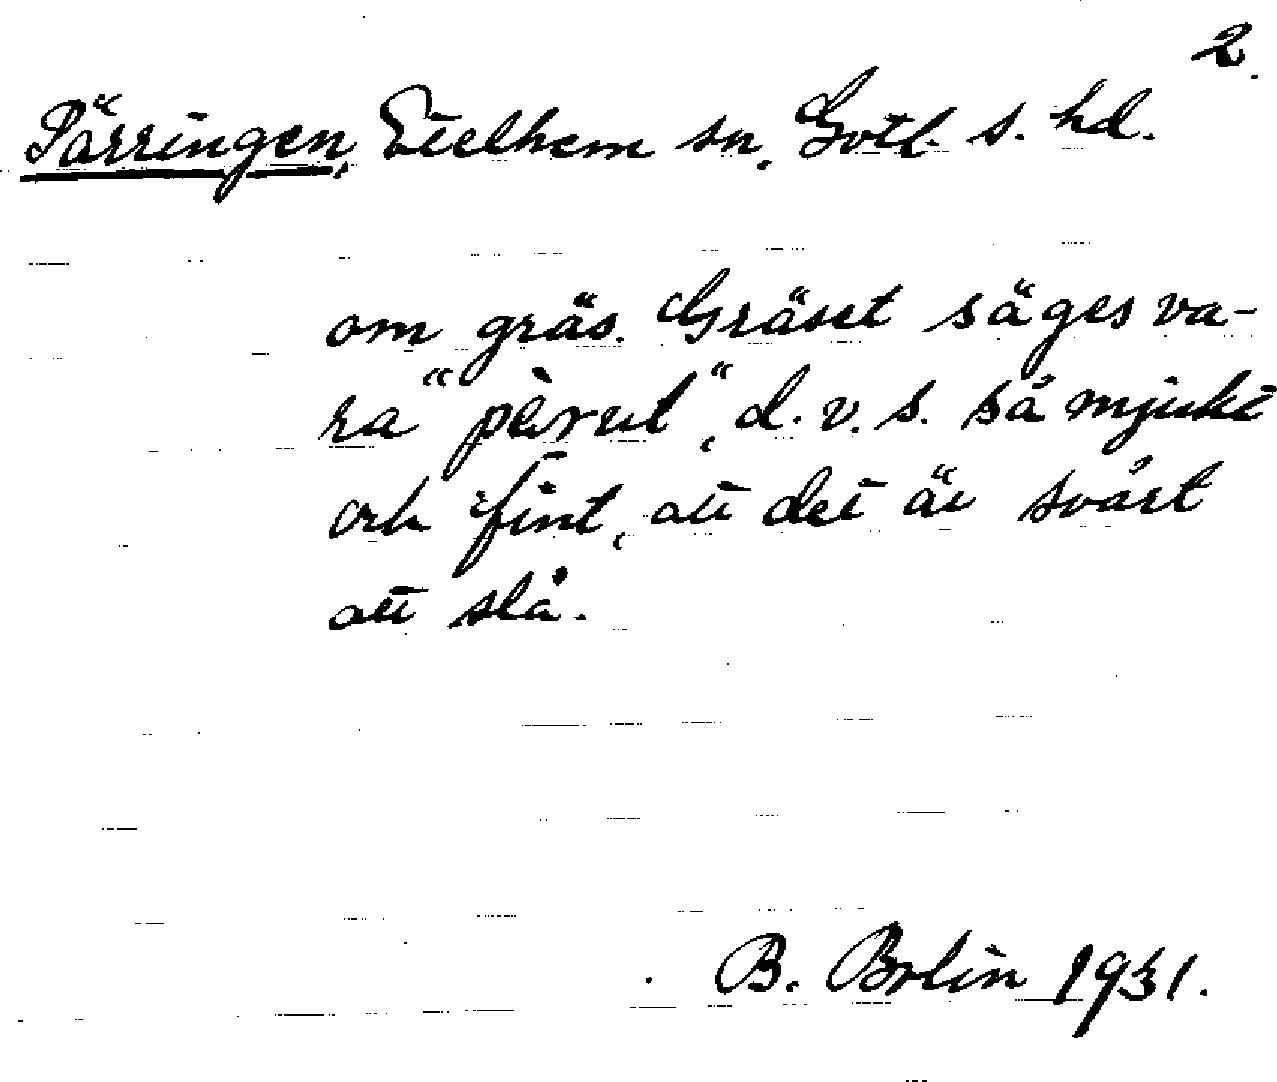 2.
Pärringen, Etelhem sn, Gotl. s. hd.
om gräs. Gräset säges va-
ra "pèrut", d. v. s. så mjukt
och fint, att det är svårt
att slå.
B. Bolin 1931.